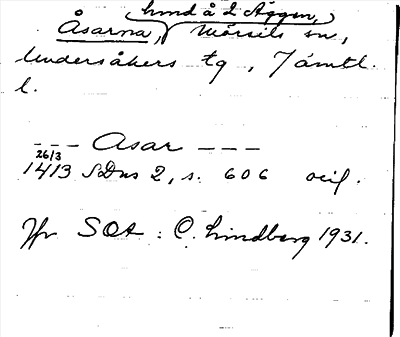 hmd å L Äggen,
Åsarna, Mörsils sn,
Undersåkers tg, Jämtl.
l.
--- Asar ---
26/3
1413 SDns 2, s. 606 ocif.
Jfr SOA : C. Lindberg 1931.